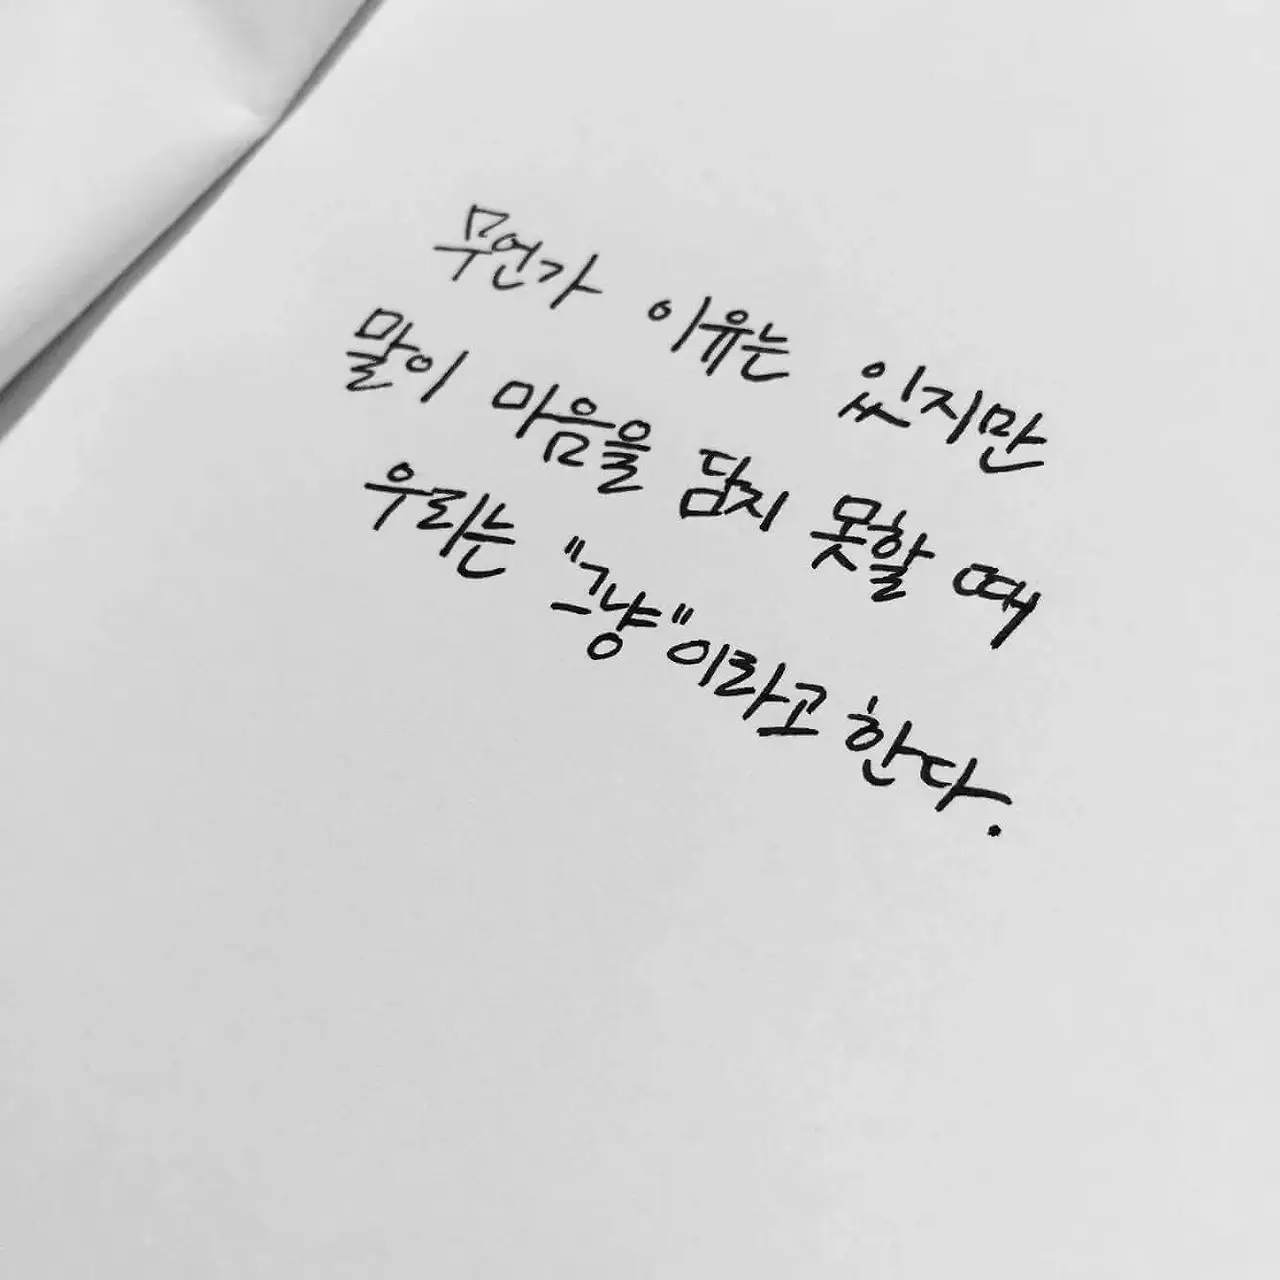 무언가 이유는 있지만
말이 마음을 담지 못할 때
우리는 "그냥"이라고 한다.